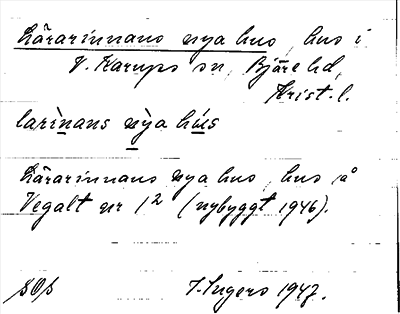 Lärarinnans nya hus, hus i
V. Karups sn, Bjäre hd,
Krist. l.
larìnans nỳa hús
Lärarinnans nya hus, hus på
Vegalt nr 1² (nybyggt 1946).
I. Ingers 1947.